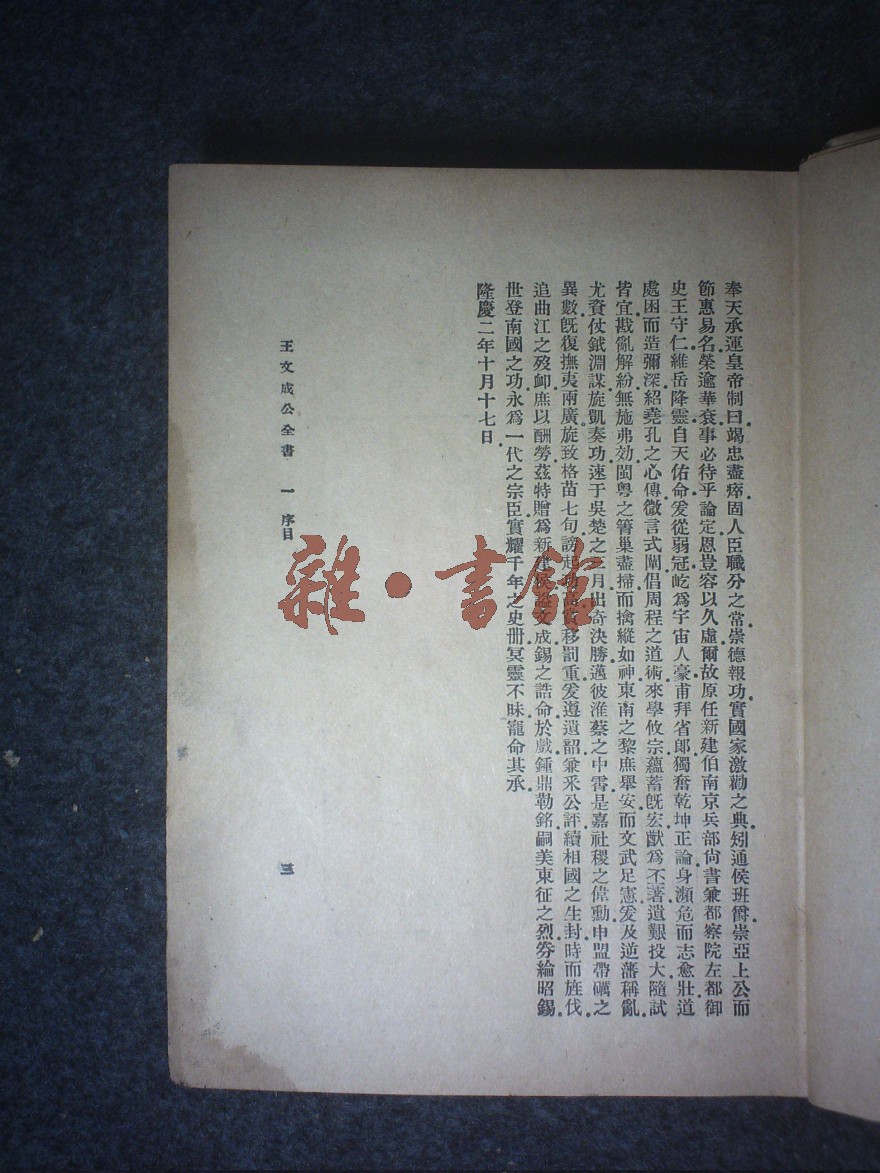 奉天承運皇帝制曰竭忠盡瘁固人臣職分之常崇德報功實國家激勸之典矧通侯班爵崇亞上公而
節惠易名榮逾華袞事必待乎論定恩豈容以久虛爾故原任新建伯南京兵部尙書兼都察院左都御
史王守仁維岳降靈自天佑命爰從弱冠屹為宇宙人豪甫拜省郎獨奮乾坤正論身瀕危而志愈壯道
處困而造彌深紹堯孔之心傳微言式闡倡周程之道術來學攸宗蘊蓄旣宏猷為丕著遺艱投大隨試
皆宜戡亂解紛無施弗効閩粤之箐巢盡掃而擒縱如神東南之黎庶舉安而文武足憲爰及逆藩稱亂
尤資仗鉞淵謀旋凱奏功速于吳楚之三月出奇決勝邁彼淮蔡之中霄是嘉社稷之偉勳申盟帶礪之
異數旣復撫夷兩廣旋致格苗七旬謗起功高賞移罰重爰遵遺詔兼采公評續相國之生封時而旌伐
追曲江之歿卹庶以酬勞茲特贈為新建侯諡文成錫之誥命於戲鍾鼎勒銘嗣美東征之烈券綸昭錫
世登南國之功永為一代之宗臣實耀千年之史冊冥靈不昧寵命其承
隆慶二年十月十七日
王文成公全書 一 序目
三
雜·書館